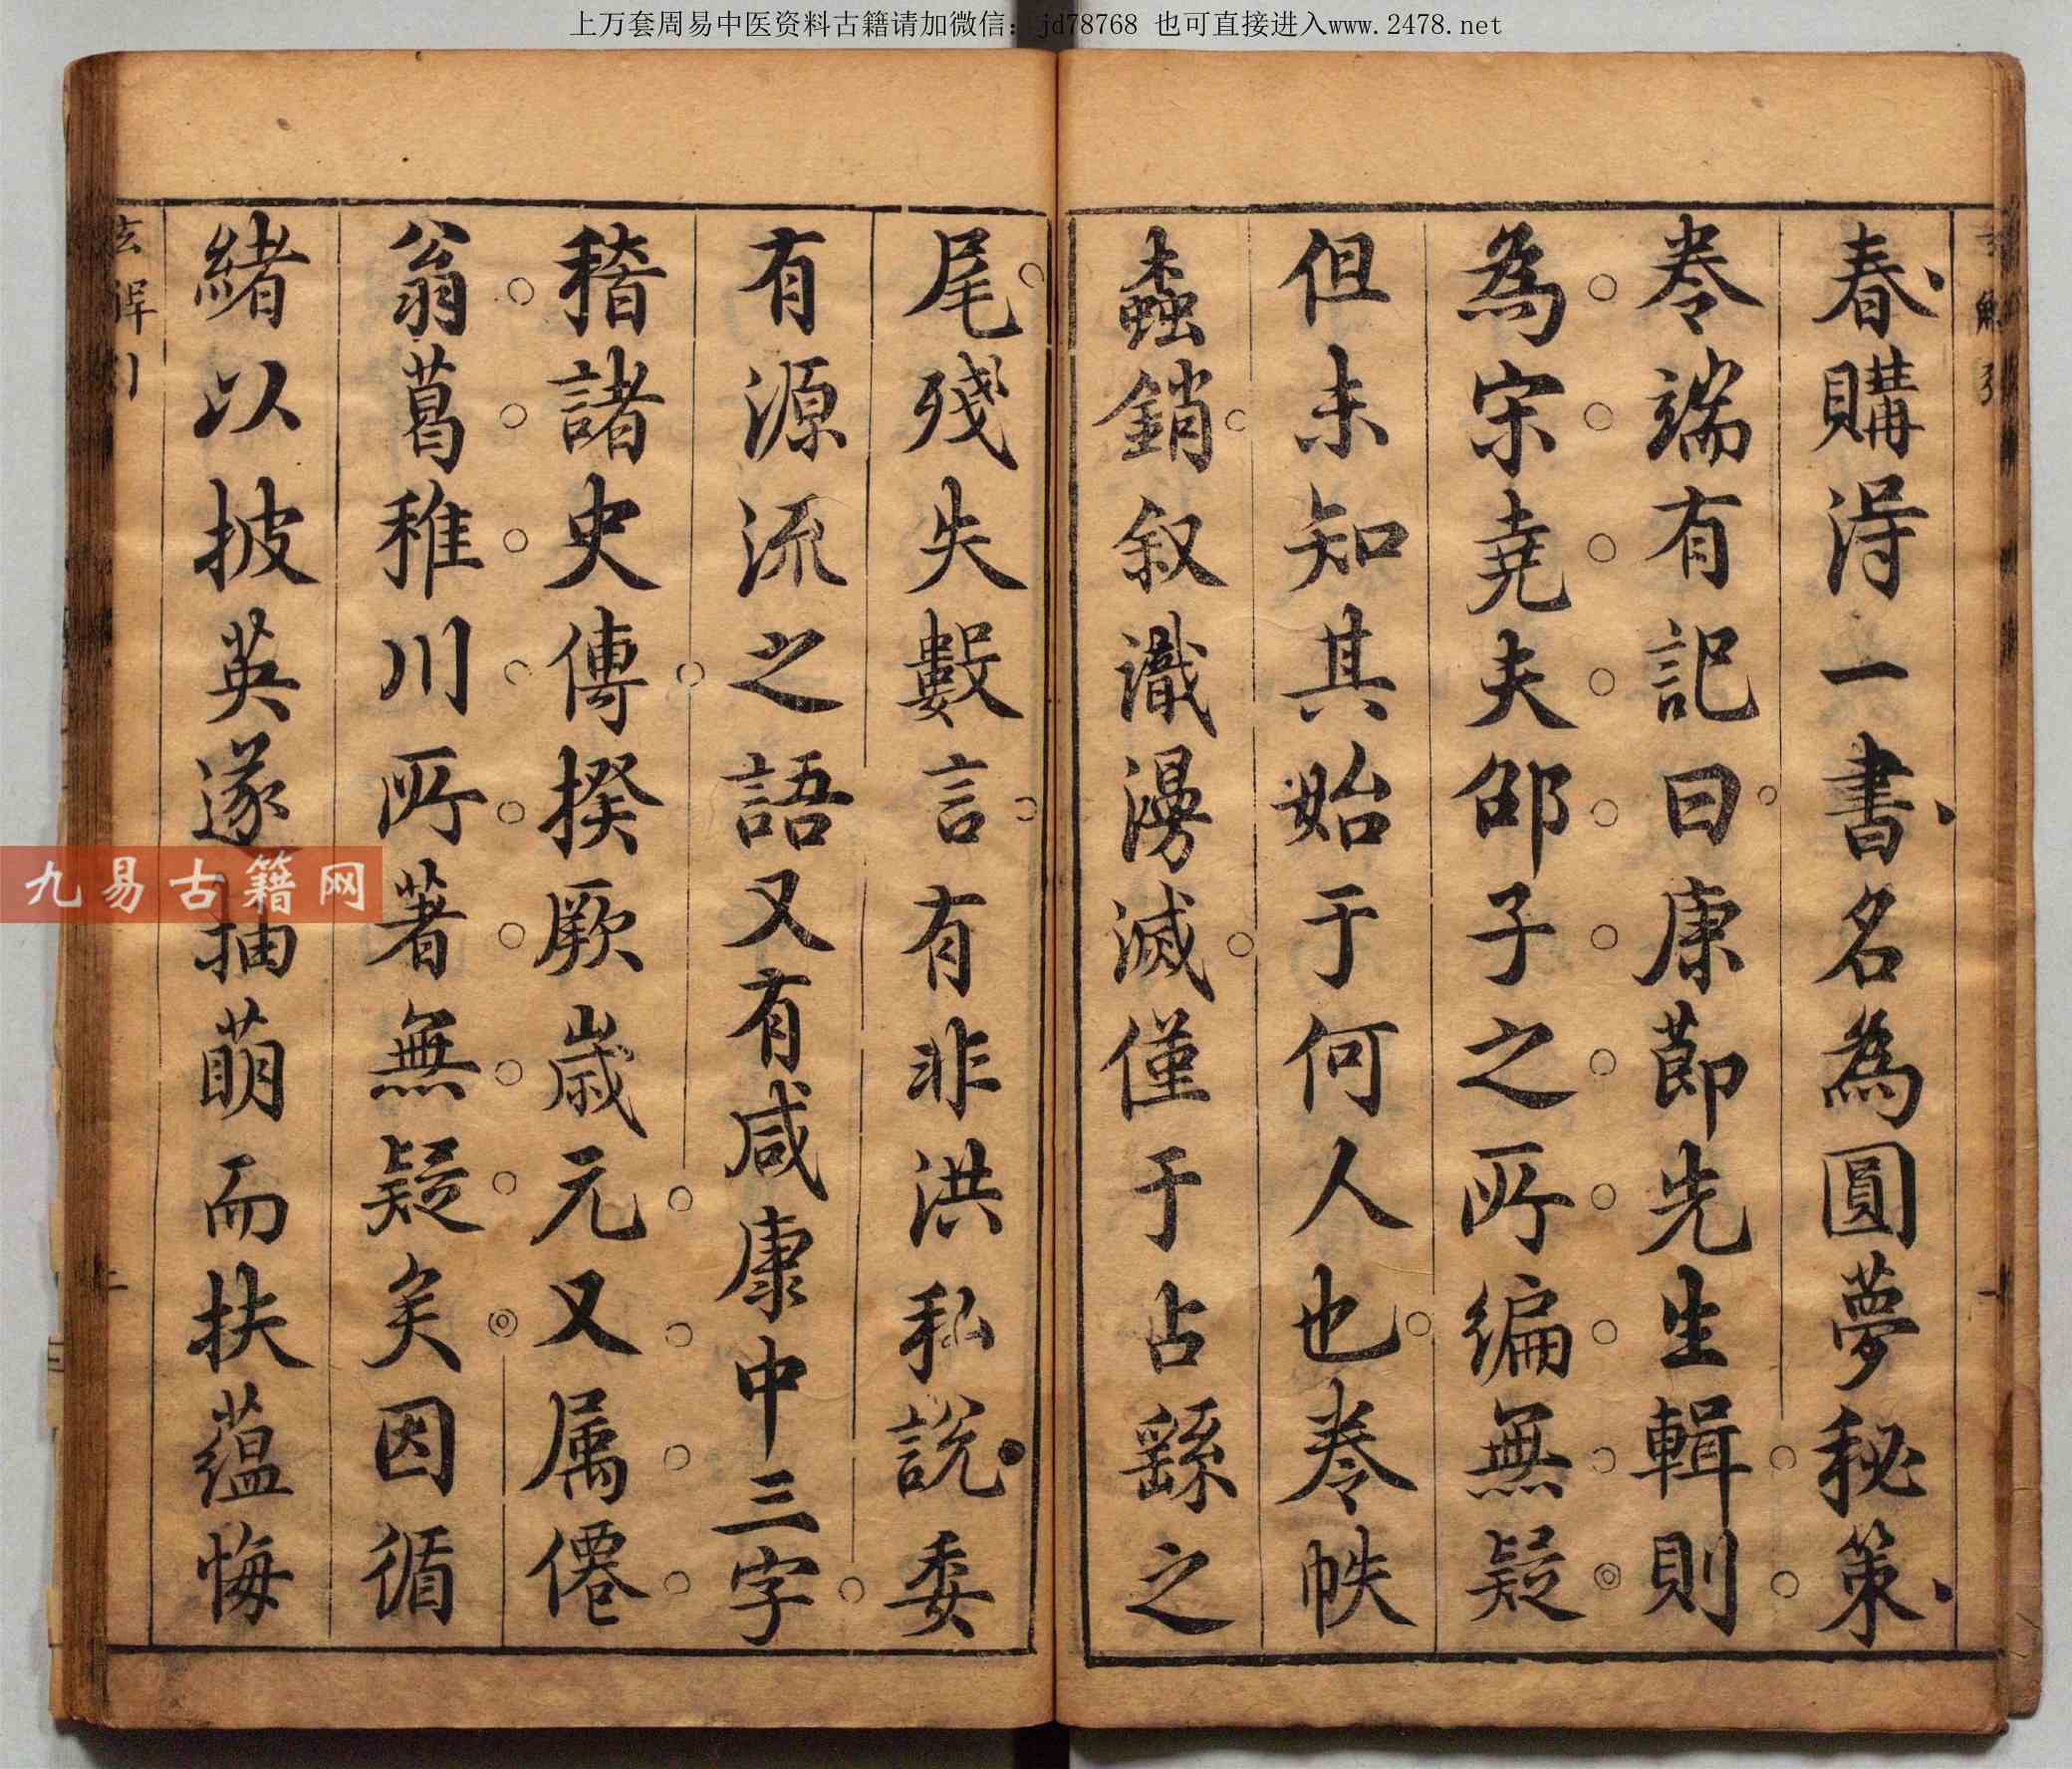 上万套周易中医资料古籍请加微信：jd78768 也可直接进入www.2478.net
春購淂一書名為圓夢秘策
卷端有記曰康節先生輯則
為宋堯夫邵子之所編無疑
但未知其始于何人也卷帙
蠹銷叙識漫滅僅于占繇之
尾殘失數言有非洪私說委
有源流之語又有咸康中三字
稽諸史傳揆厥歲元又属僊
翁葛稚川所著無疑矣因循
緒以披英遂抽萌而扶蘊悔
九易古籍网